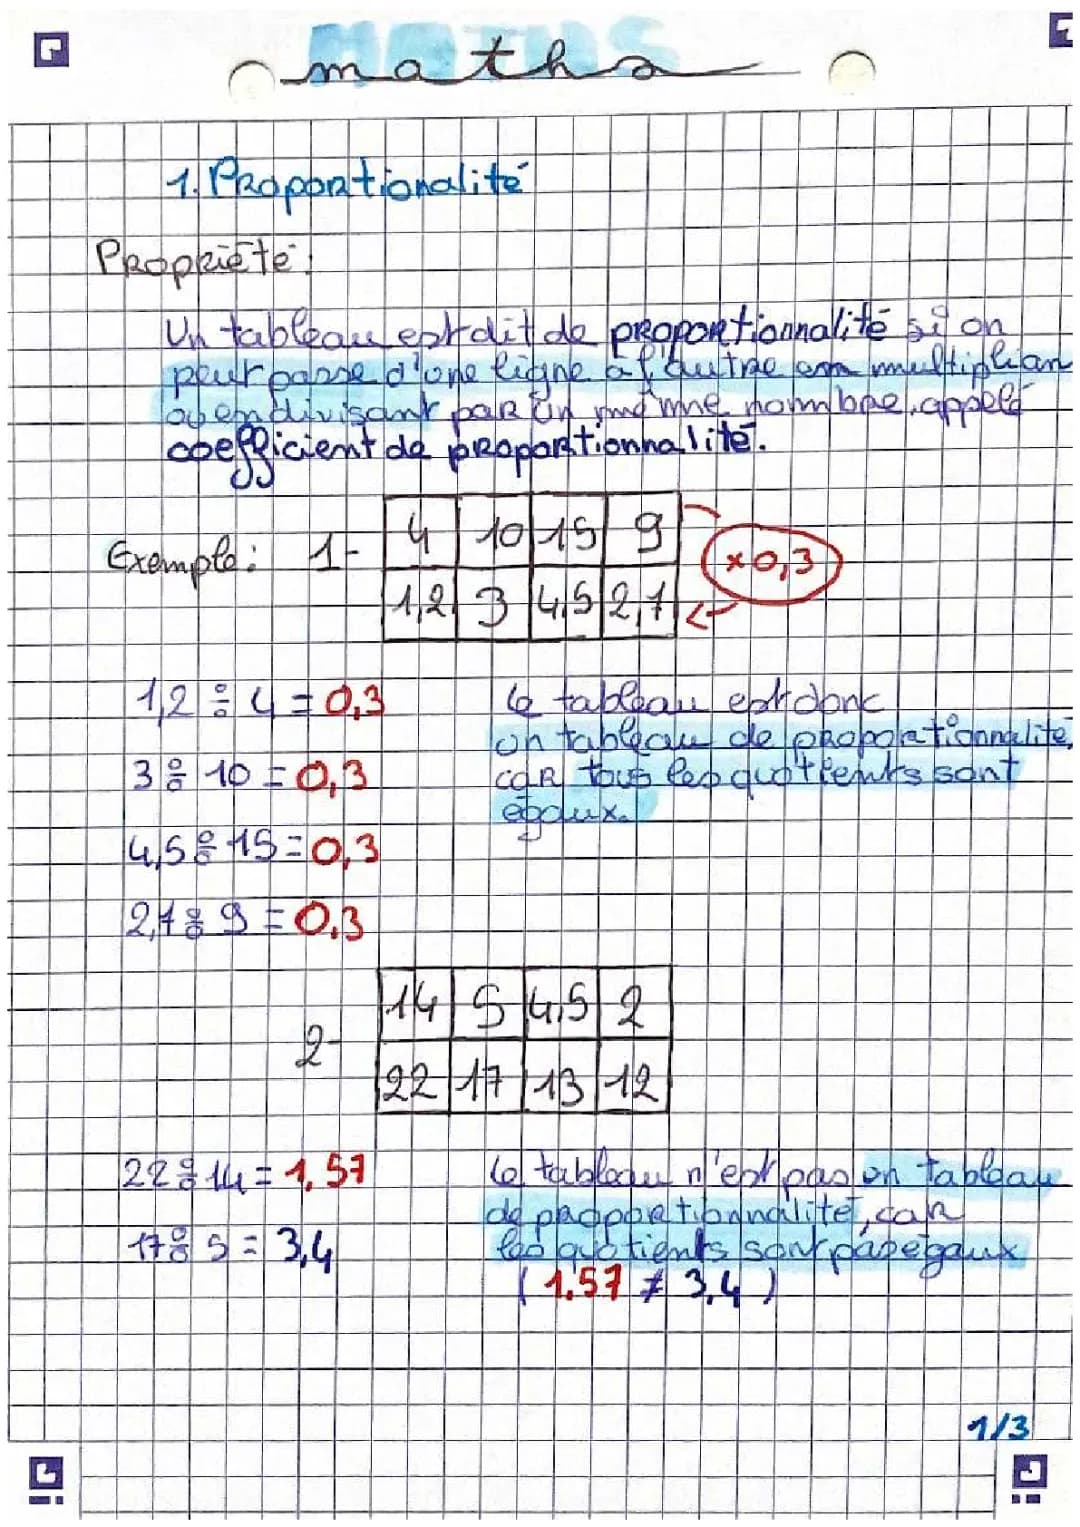 MATHS
maths
1. Proportionalité
Propriété:
Un tableau est dit de proportionnalité si on
peut passe d'une ligne a l'autre en multiplian
ou en divisant par un même nombre, appelé
coefficient de proportionnalité.
Exemple: 1-
4 10 15 9
×0,3
1,2 3 4,5 2,7
1,2 ÷ 4 = 0,3
le tableau est donc
un tableau de proportionnalité,
3 ÷ 10 = 0,3
car tous les quotients sont
égaux.
4,5 ÷ 15 = 0,3
2,7 ÷ 9 = 0.3
2-
14 5 4,5 2
22 17 13 12
22 ÷ 14 = 1,57
le tableau n'est pas un tableau
de proportionnalité, car
17 ÷ 5 = 3,4
les quotients sont pas égaux
( 1.57 ≠ 3,4 )
1/3